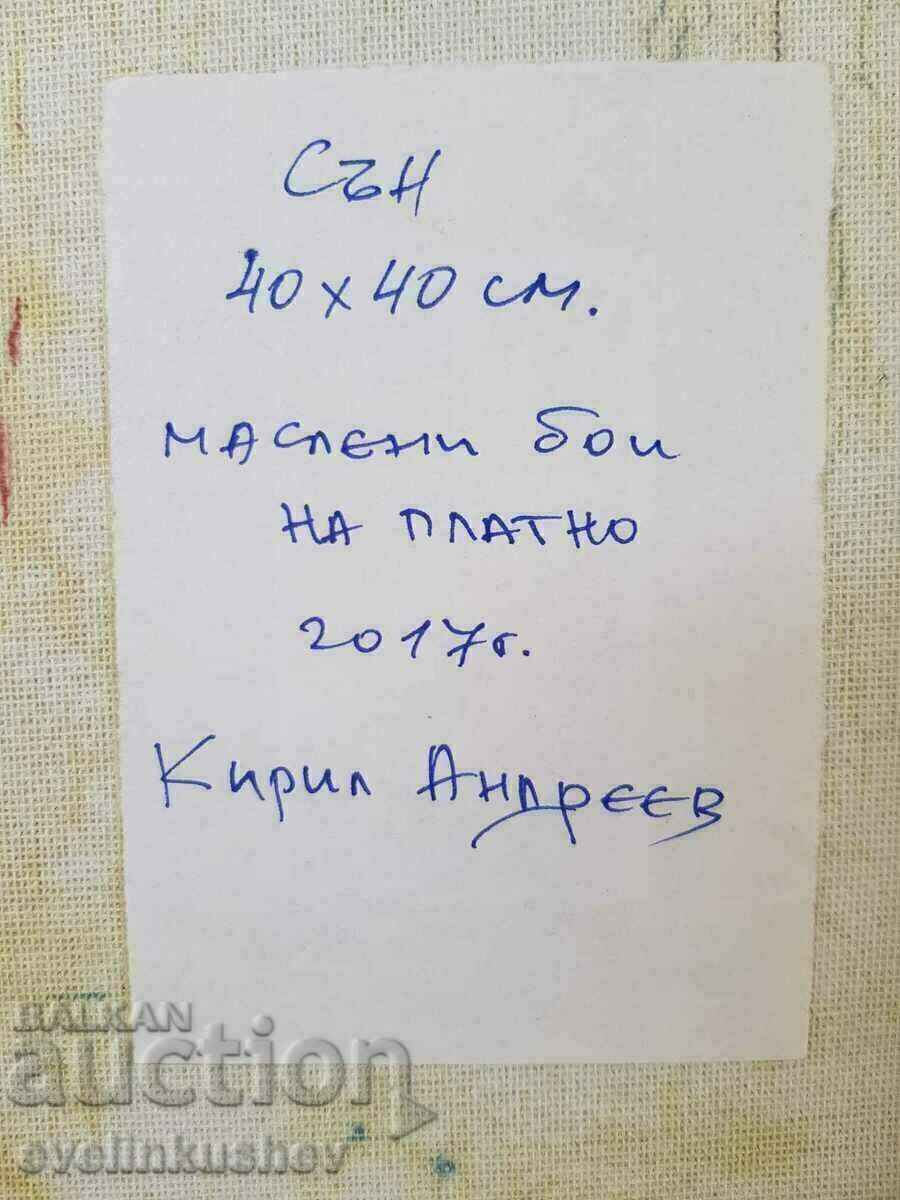 Сън
40 х 40 см.
МАСЛЕНИ БОИ
НА ПЛАТНО
2017г.
Кирил Андреев
BALKAN
auction
evelinkushev